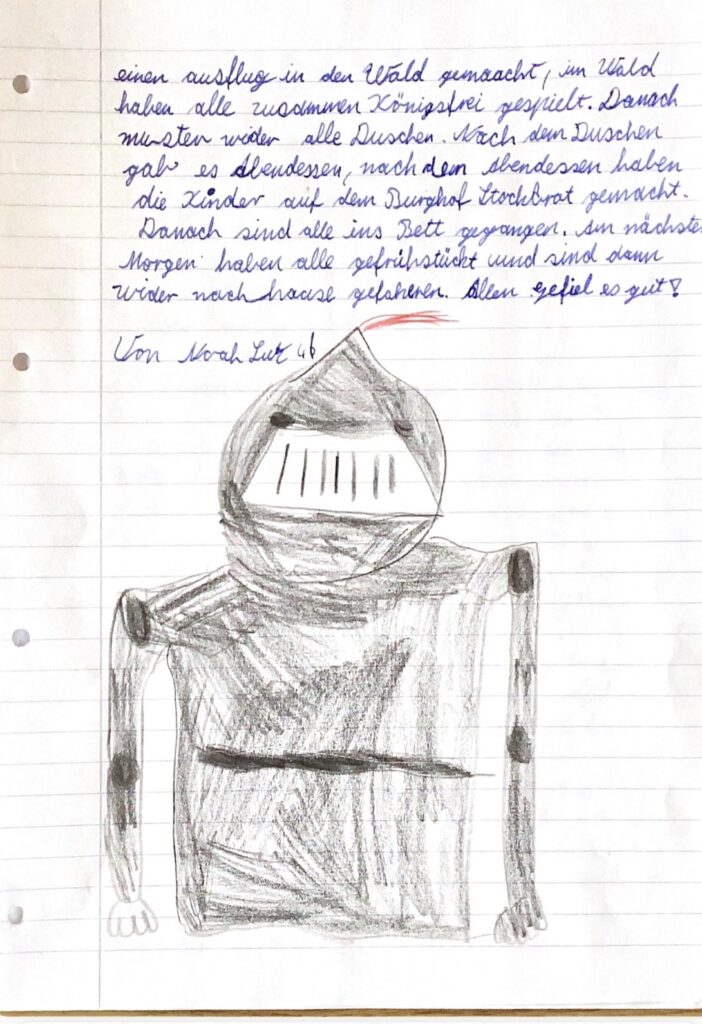 einen ausflug in den Wald gemaacht, im Wald
haben alle zusammen Königsfrei gespielt. Danach
mussten wider alle Duschen. Nach dem Duschen
gab es Abendessen, nach dem Abendessen haben
die Kinder auf dem Burghof Stockbrot gemacht.
Danach sind alle ins Bett gegrangen. Am nächsten
Morgen haben alle gefrühstückt und sind dann
wider nach hause gefaheren. Allen gefiel es gut!
Von Noah Lutz 4b